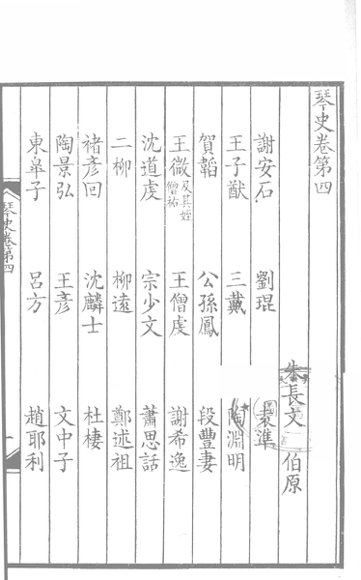 琴史卷第四
朱長文 伯原
謝安石 劉琨 袁準
王子猷 三戴 陶淵明
賀韜 公孫鳳 段豐妻
王微及其姪僧祐 王僧虔 謝希逸
沈道虔 宗少文 蕭思話
二柳 柳遠 鄭述祖
褚彥回 沈麟士 杜棲
陶景弘 王彥 文中子
東皋子 呂方 趙耶利
琴史卷第四
一